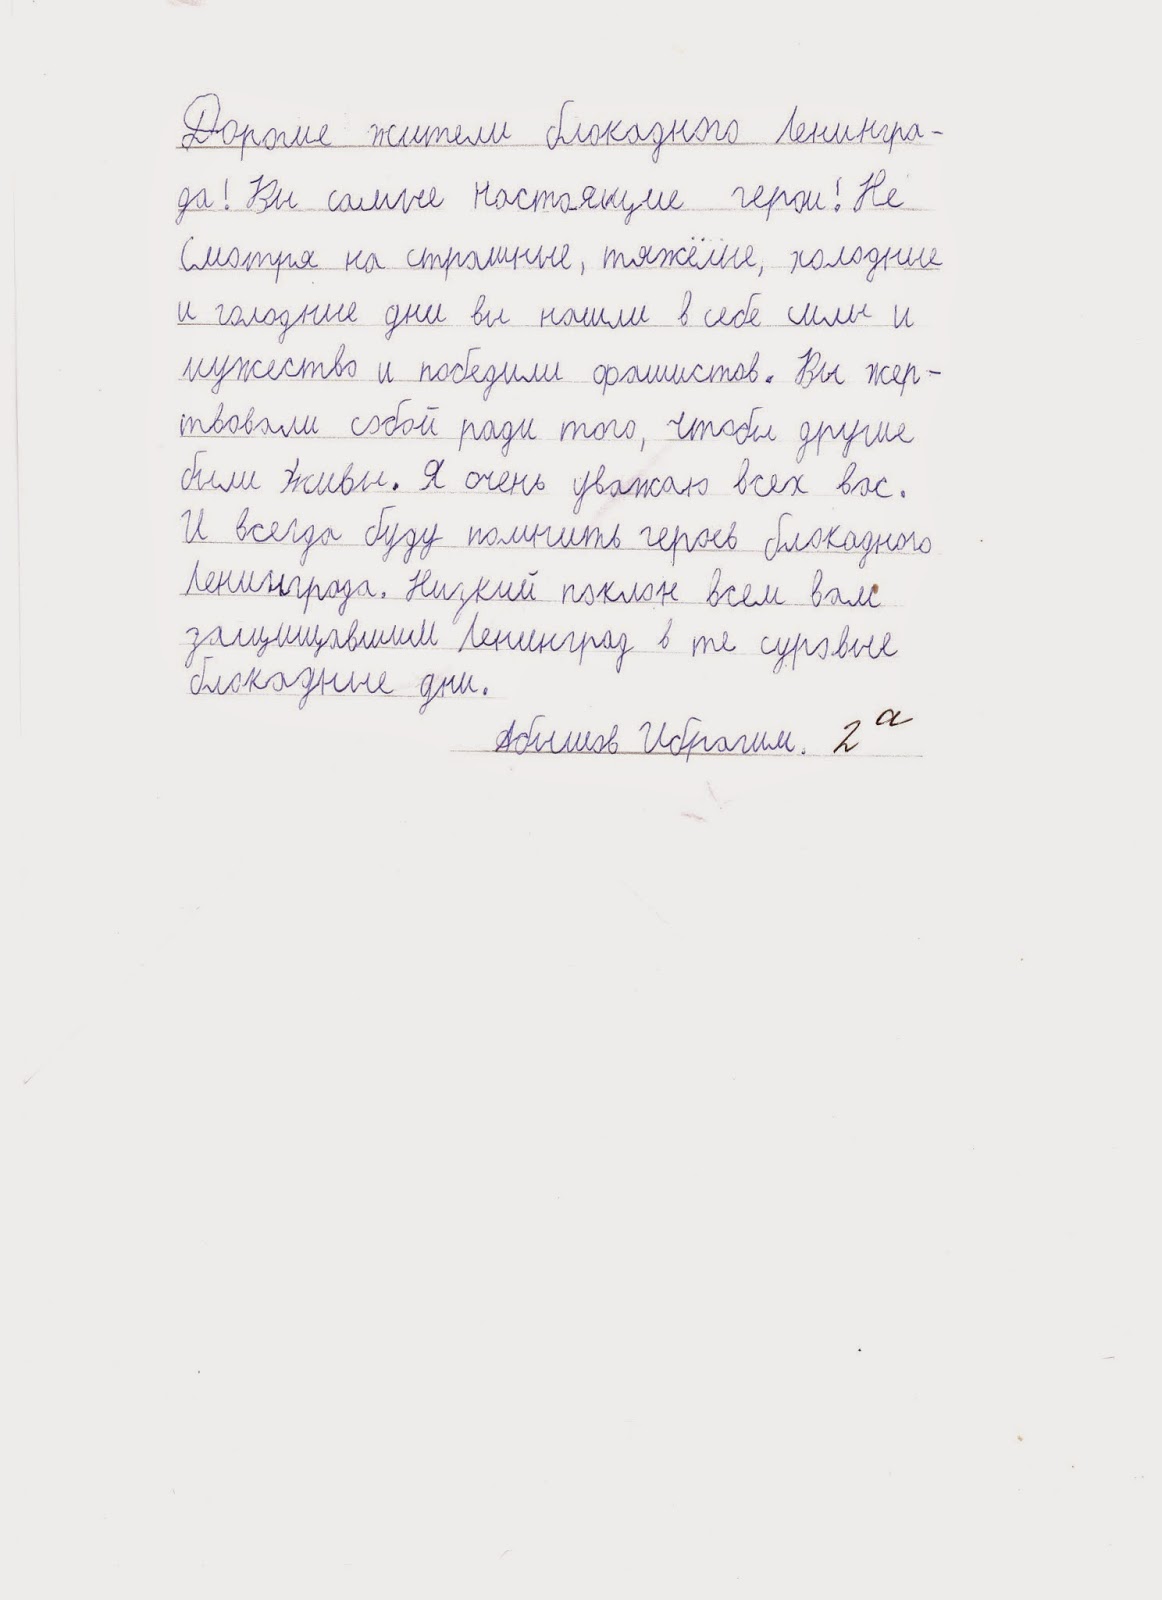 Дорогие жители блокадного Ленингра-
да! Вы самые настоящие герои! Не
смотря на страшные, тяжёлые, холодные
и голодные дни вы нашли в себе силы и
мужество и победили фашистов. Вы жер-
твовали собой ради того, чтобы другие
были живы. Я очень уважаю всех вас.
И всегда буду помнить героев блокадного
Ленинграда. Низкий поклон всем вам
защищавшим Ленинград в те суровые
блокадные дни.
Абышов Ибрагим. 2 а